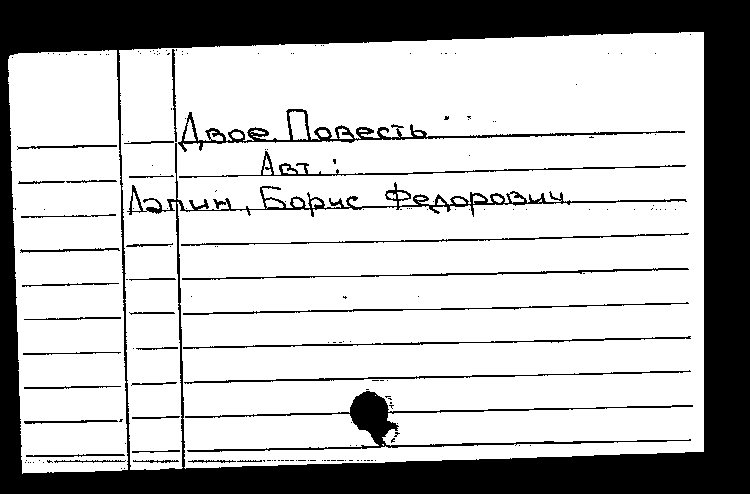 Двое. Повесть
Авт.:
Лапин, Борис Федорович.